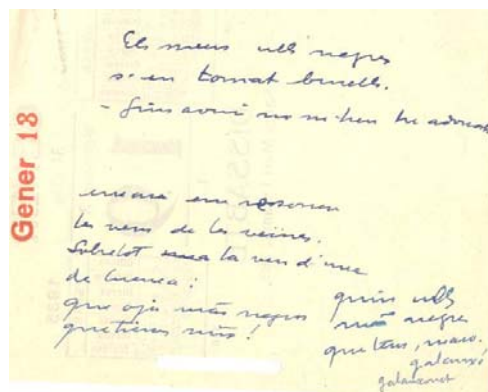 Els meus ulls negres
s'en tornat bruells.
- fins avui no m'hen he adonat
encara em ressonen
les veus de les veïnes.
Sobretot la veu d'una
de Cuenca:
que ojos más negros
que tienes niño!
quins ulls
més negres
que tens, maco.
galanxó
galanxonet
Gener 18